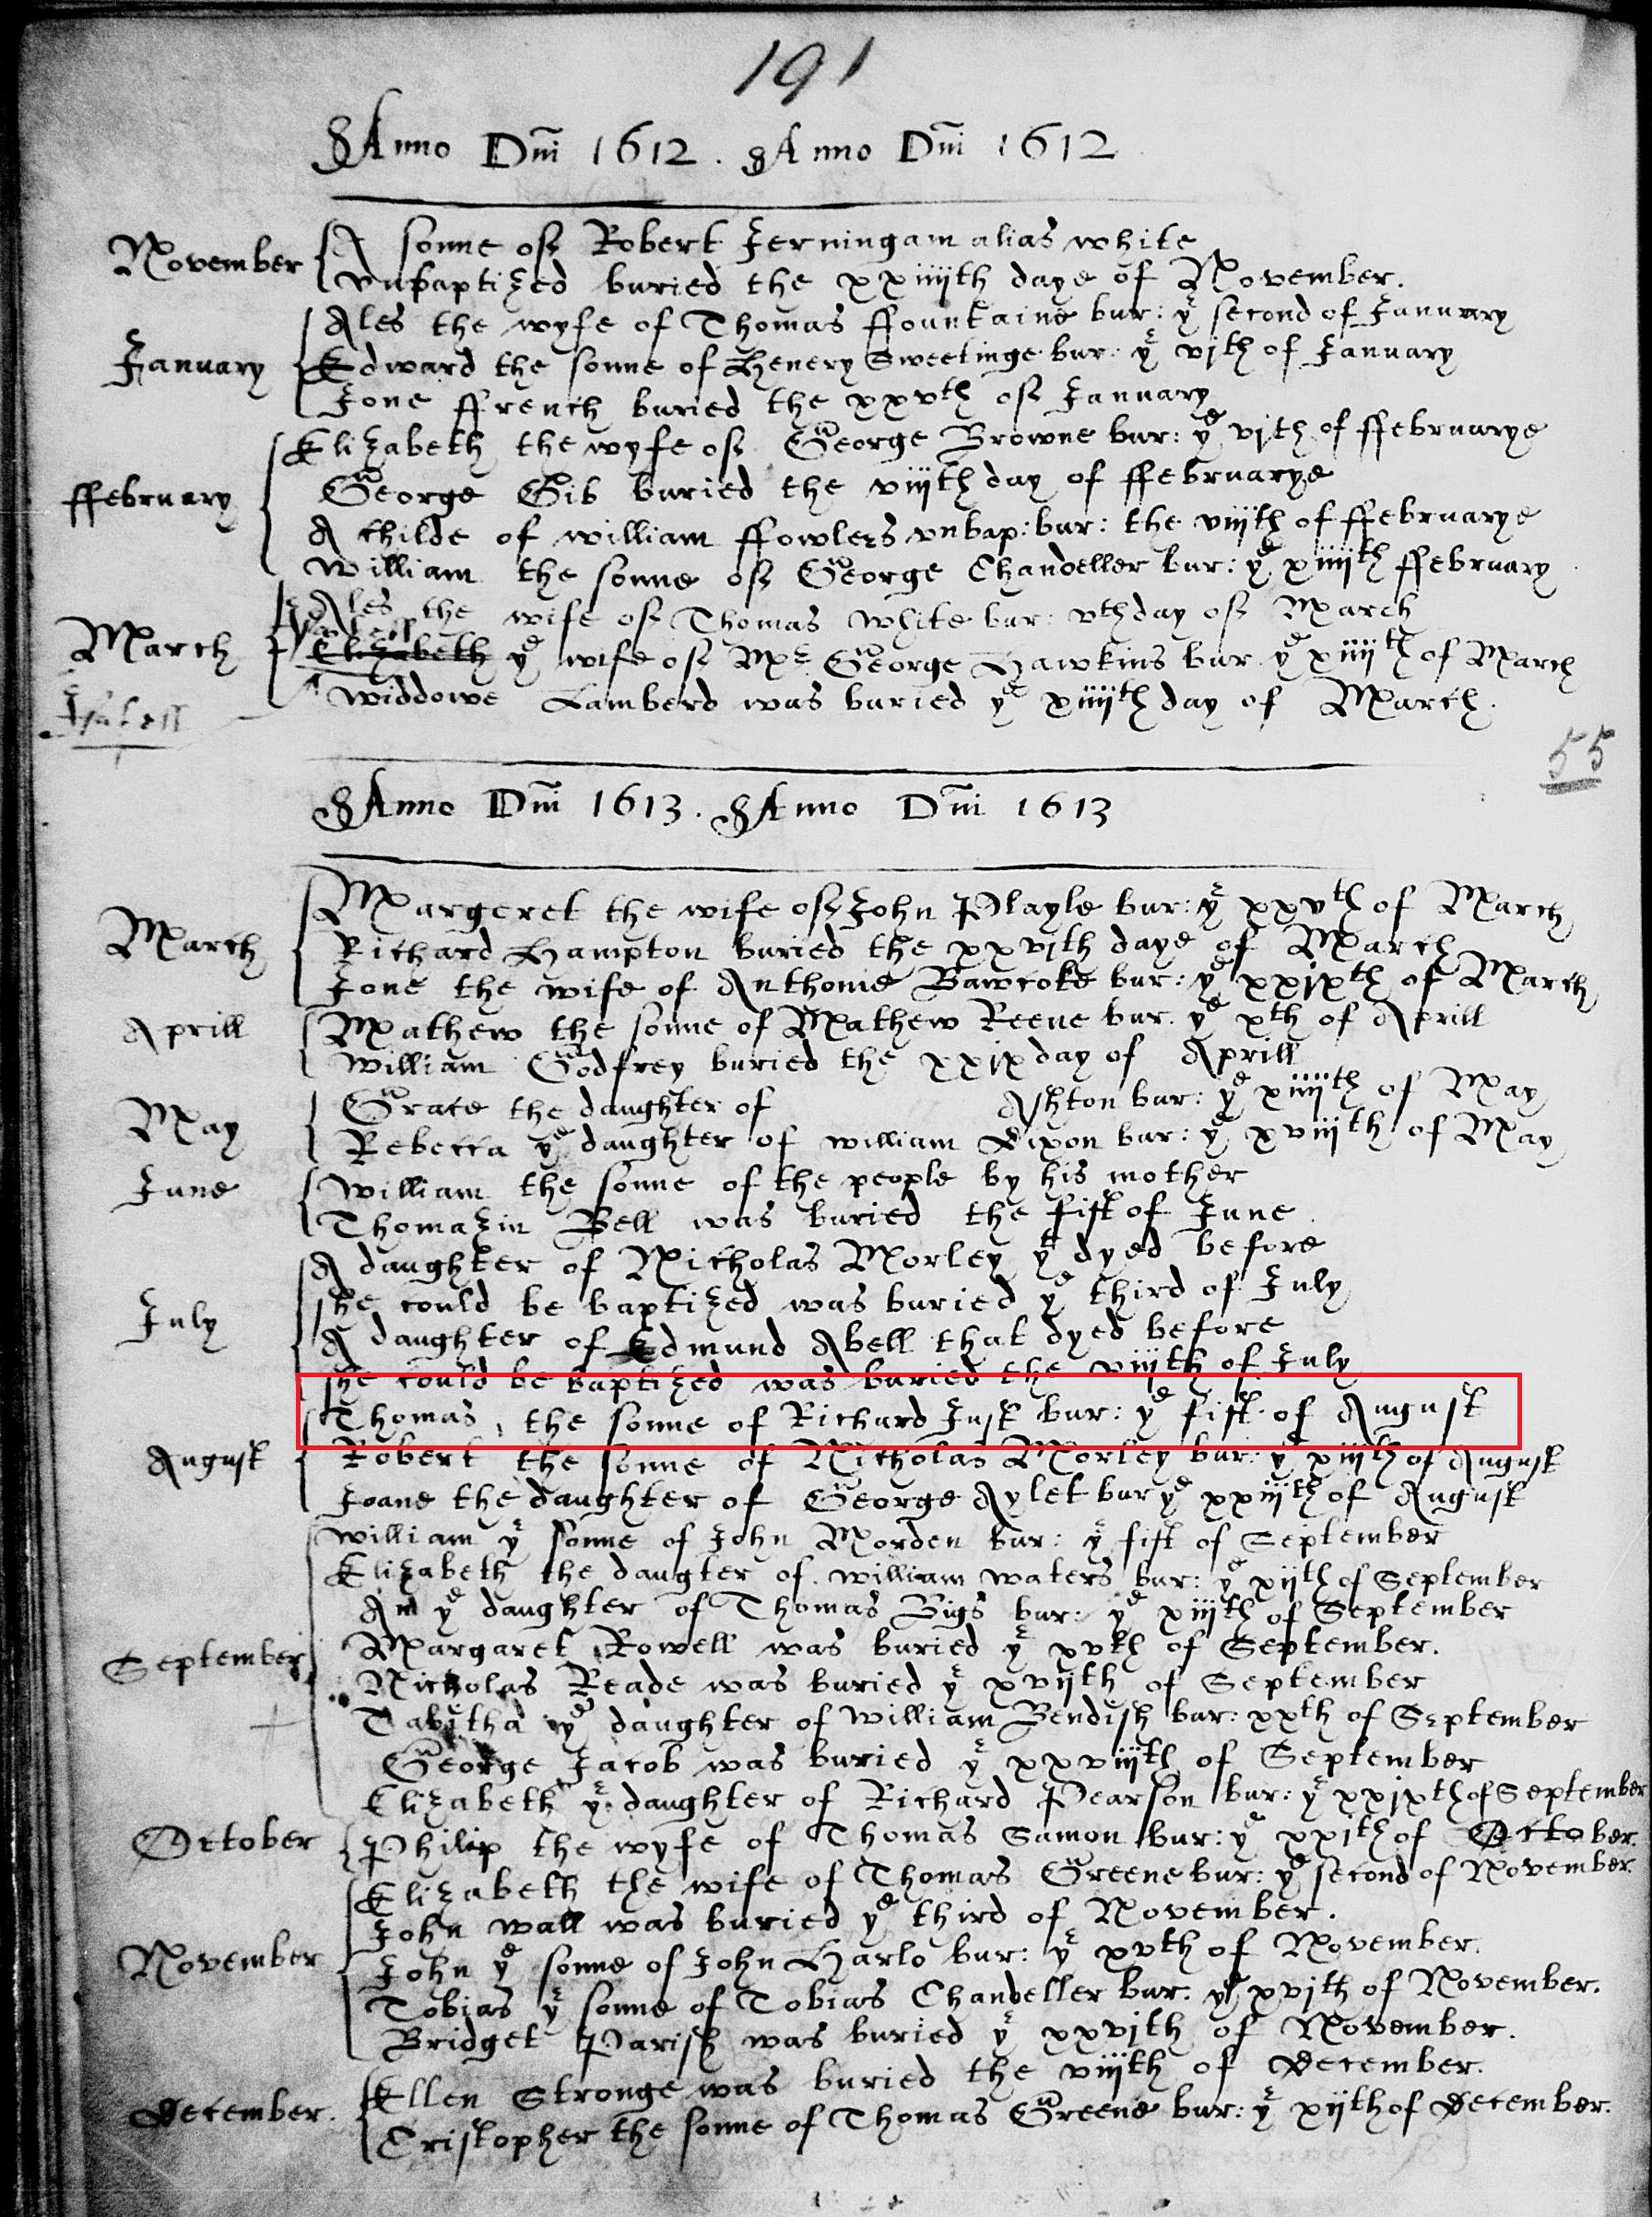 191
Anno Dm̄i 1612. Anno Dm̄i 1612
November A sonne of Robert Jerningam alias white
vnbaptized buried the xxiiijth daye of November.
Ales the wyfe of Thomas ffountaine bur: yͤ second of Januuary
January Edward the sonne of Henery Sweetinge bur: yͤ vjth of January
Jone ffrench buried the xxvth of January
Elizabeth the wyfe of George Browne bur: yͤ vjth of ffebruarye
ffebruary George Gib buried the viijth day of ffebruarye
A childe of william ffowlers vnbap: bur: the viijth of ffebruarye
William the sonne of George Chandeller bur: yͤ xiiijth ffebruary
Ales the wife of Thomas White bur: vth day of March
Isabell
March Elizabeth yͤ wife of Mr George Hawkins bur yͤ xiiijth of March
widdowe Lamberd was buried yͤ xiiijth day of March.
Isabell
55
Anno Dm̄i 1613. Anno Dm̄i 1613
Margeret the wife of John Playle bur: yͤ xxvth of March
March Richard Hampton buried the xxvjth daye of March
Jone the wife of Anthonie Bawcoke bur: yͤ xxjxth of March
Aprill Mathew the sonne of Mathew Reene bur. yͤ xth of Aprill
William Godfrey buried the xxjx day of Aprill
May Grace the daughter of Ashton bur: yͤ xiiijth of May
Rebecca yͤ daughter of william Dixon bur: yͤ xviijth of May
June William the sonne of the people by his mother
Thomazin Bell was buried the fist of June
A daughter of Nicholas Morley yt dyed before
July she could be baptized was buried yͤ third of July
A daughter of Edmund Abell that dyed before
she could be baptized was buried the viijth of July
Thomas, the sonne of Richard Just bur: yͤ fist of August
August Robert the sonne of Nicholas Morley bur: yͤ xiijth of August
Joane the daughter of George Aylet bur yͤ xxiijth of August
william yͤ sonne of John Morden bur: yͤ fift of September
Elizabeth the daugter of william waters bur: yͤ xijth of September
An yͤ daughter of Thomas Bigs bur: yͤ xiijth of September
September Margaret Rowell was buried yͤ xvth of September.
Nicholas Reade was buried yͤ xvijth of September
Tabitha yͤ daughter of William Bendish bur: xxth of September
George Jacob was buried yͤ xxviijth of September
Elizabeth yͤ daughter of Richard Pearson bur: yͤ xxjxth of September
October Philip the wyfe of Thomas Samon bur: yͤ xxjth of October.
Elizabeth the wife of Thomas Greene bur: yͤ second of November.
John wall was buried yͤ third of November.
November John yͤ sonne of John Harlo bur: yͤ xvth of November.
Tobias yͤ sonne of Tobias Chandeller bur: yͤ xvjth of November.
Bridget Parish was buried yͤ xxvjth of November.
December. Ellen Stronge was buried the viijth of December.
Cristopher the sonne of Thomas Greene bur: yͤ xijth of December.